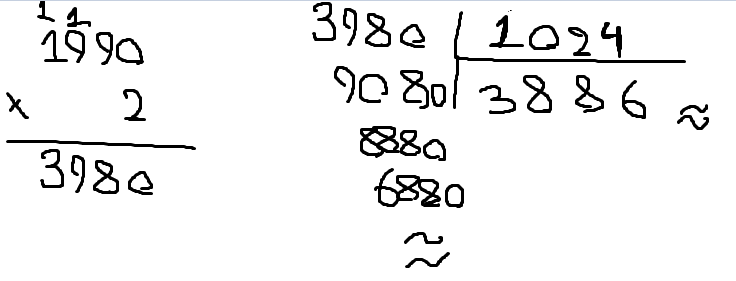 1 1
1990
x 2
3980
3980 1024
9080 3886 ≈
8880
6880
≈